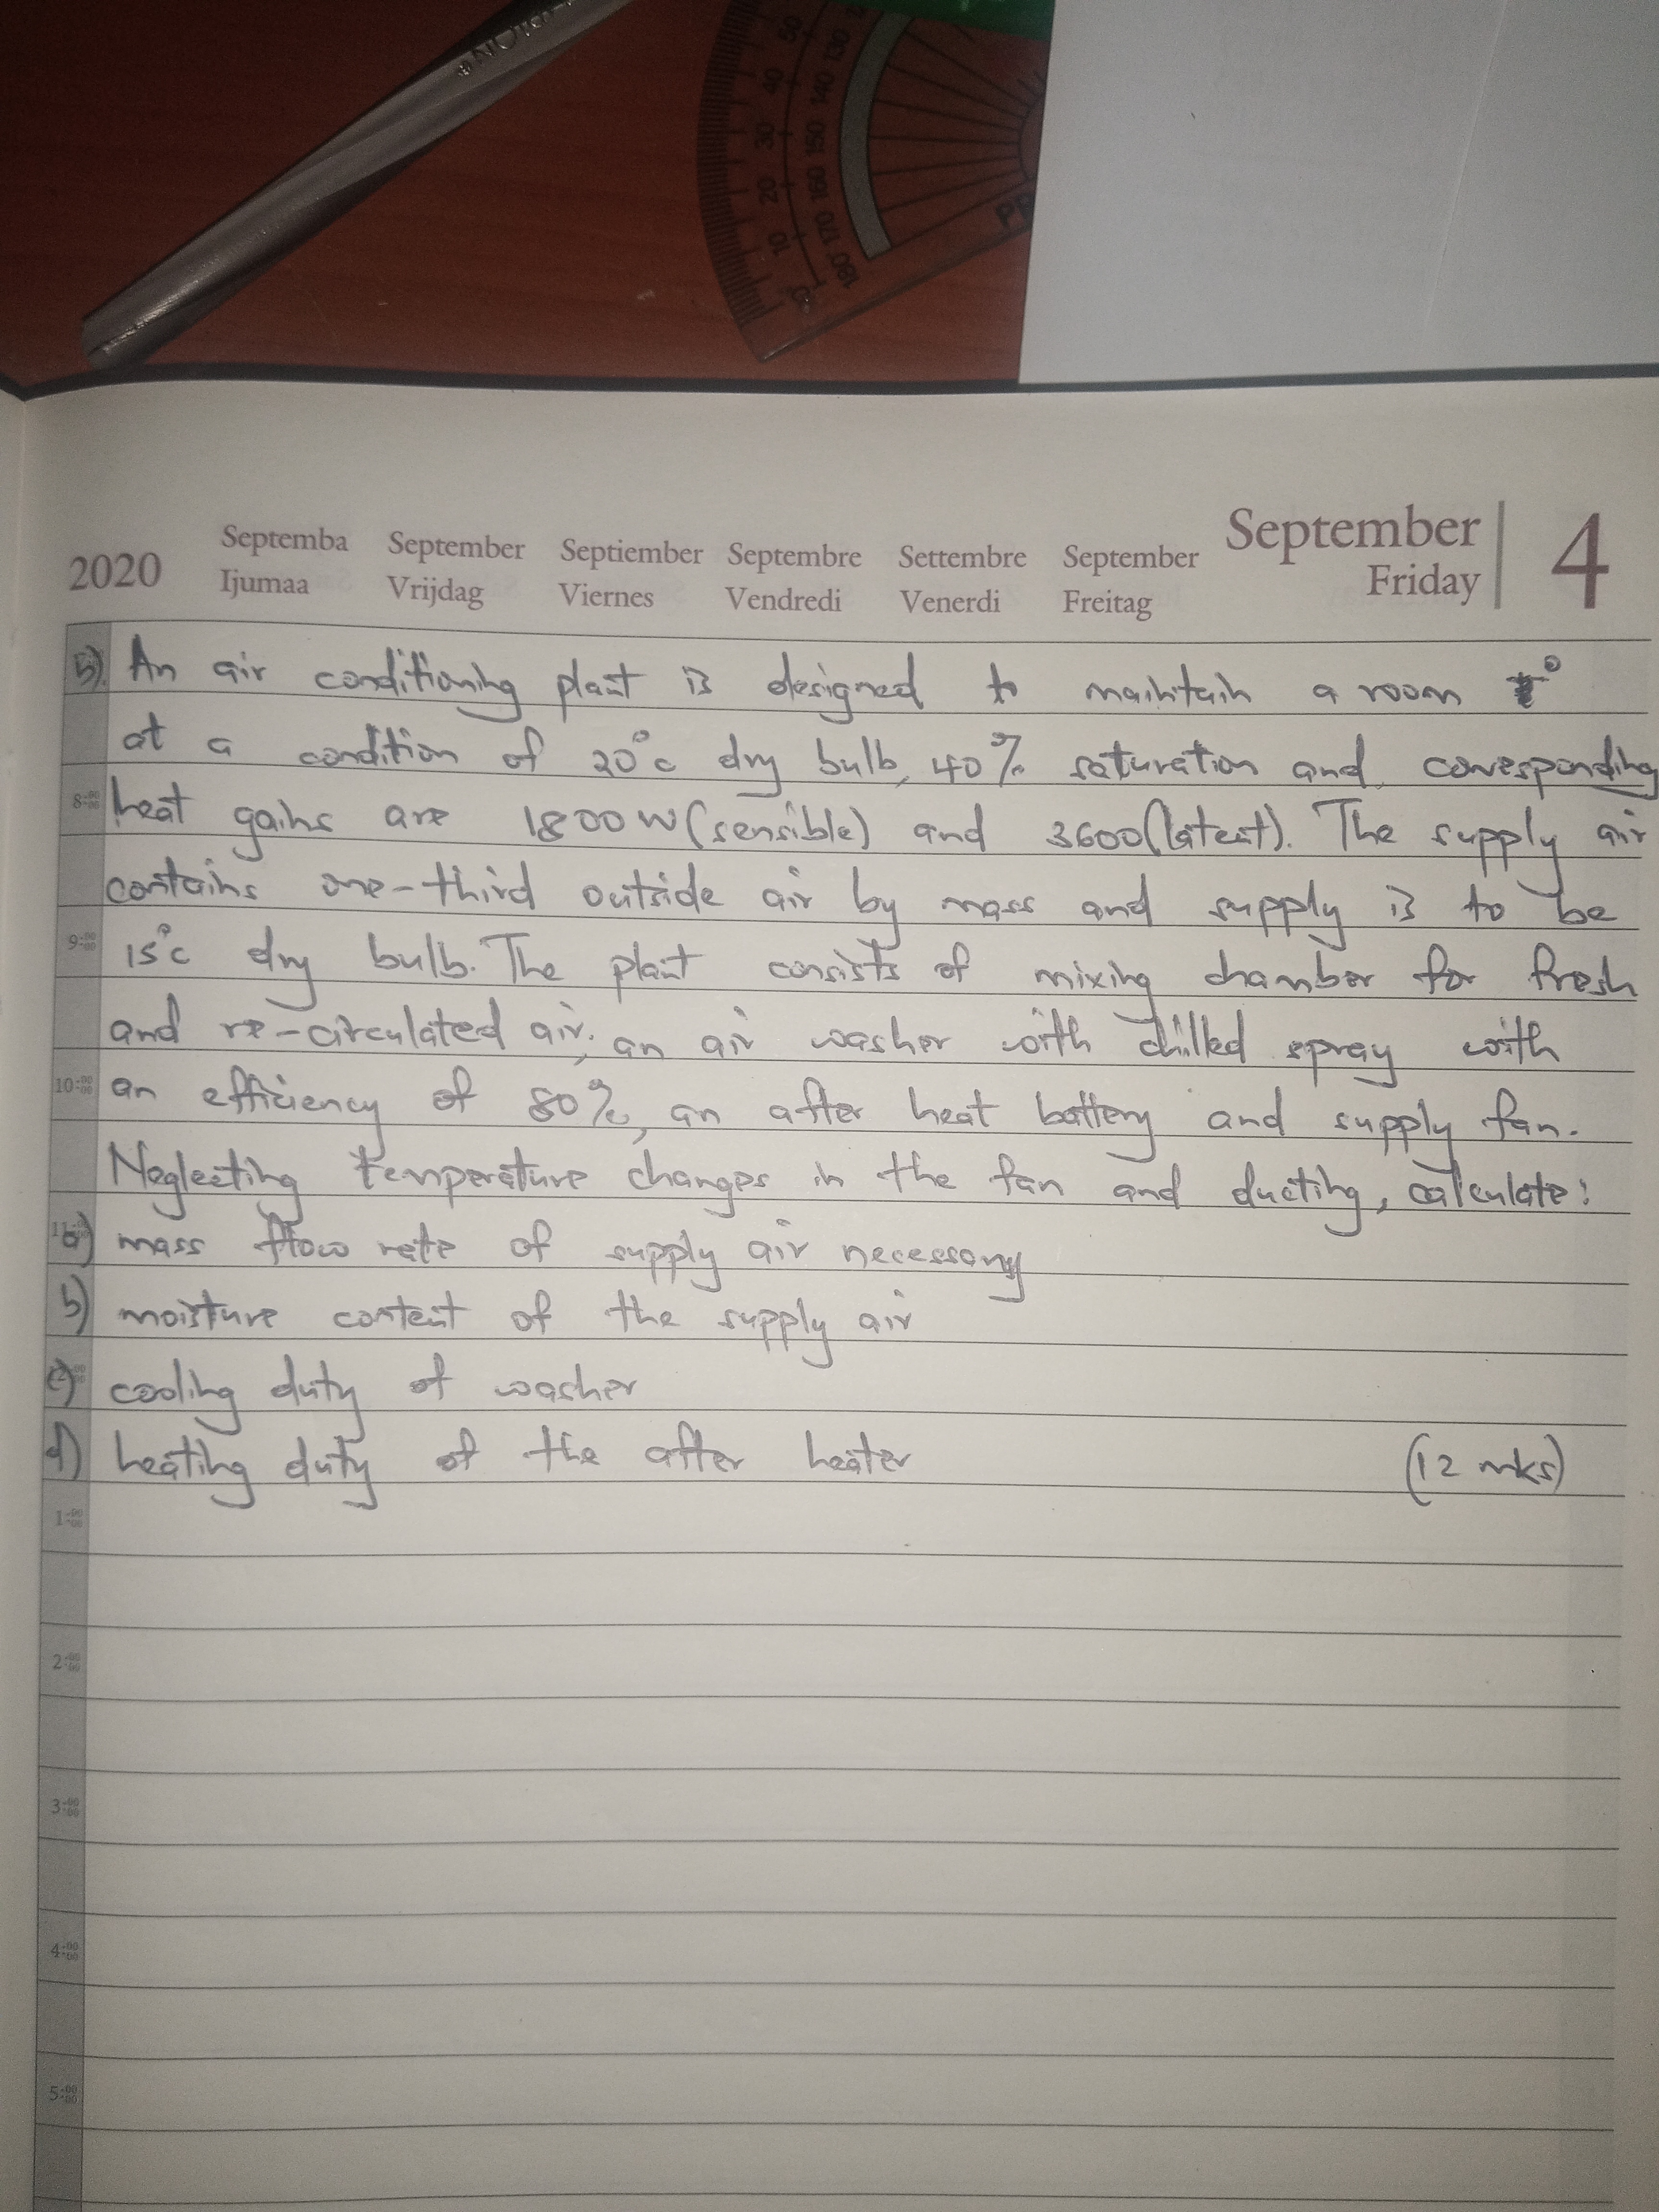 NOTION®
50 40 30 20 10 0
130 140 150 160 170 180
2020
Septemba September Septiember Septembre Settembre September September 4
Ijumaa Vrijdag Viernes Vendredi Venerdi Freitag Friday
5). An air conditioning plant is designed to maintain a room
at a condition of 20°c dry bulb, 40% saturation and corresponding
8:00 heat gains are 1800W (sensible) and 3600 (latent). The supply air
contains one-third outside air by mass and supply is to be
9:00 15°c dry bulb. The plant consists of mixing chamber for fresh
and re-circulated air, an air washer with chilled spray with
10:00 an efficiency of 80%, an after heat battery and supply fan.
Neglecting temperature changes in the fan and ducting, calculate:
a) mass flow rate of supply air necessary
b) moisture content of the supply air
c) cooling duty of washer
d) heating duty of the after heater (12 mks)
1:00
2:00
3:00
4:00
5:00